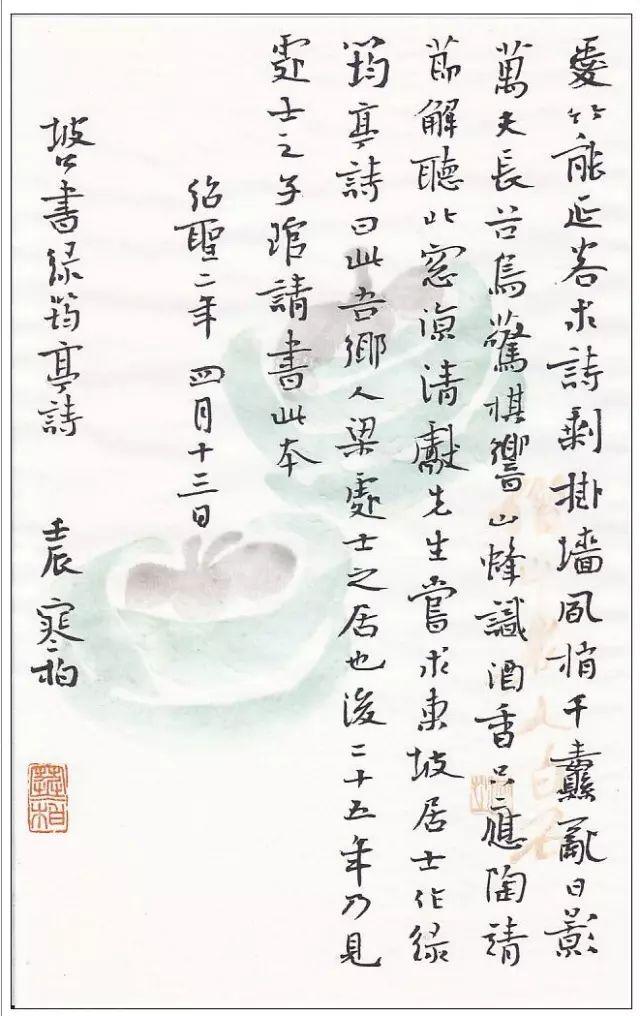 愛竹能延客求詩剩掛墻風梢千纛亂日影
萬夫長谷鳥驚棋響山蜂識酒香只應陶靖
節解聽北窓涼清獻先生嘗求東坡居士作緑
筠亭詩曰此吾鄉人梁處士之居也後二十五年乃見
處士之子琯請書此本
紹聖二年 四月十三日
坡公書緑筠亭詩 壬辰 寒柏